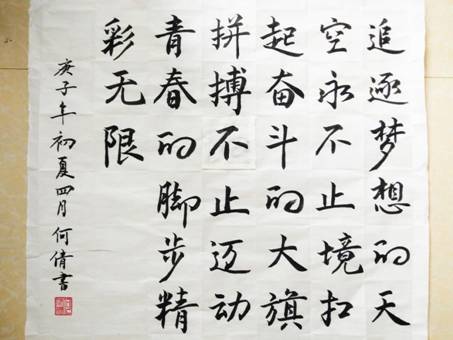 追逐梦想的天
空永不止境扛
起奋斗的大旗
拼搏不止迈动
青春的脚步精
彩无限
庚子年初夏四月何倩书